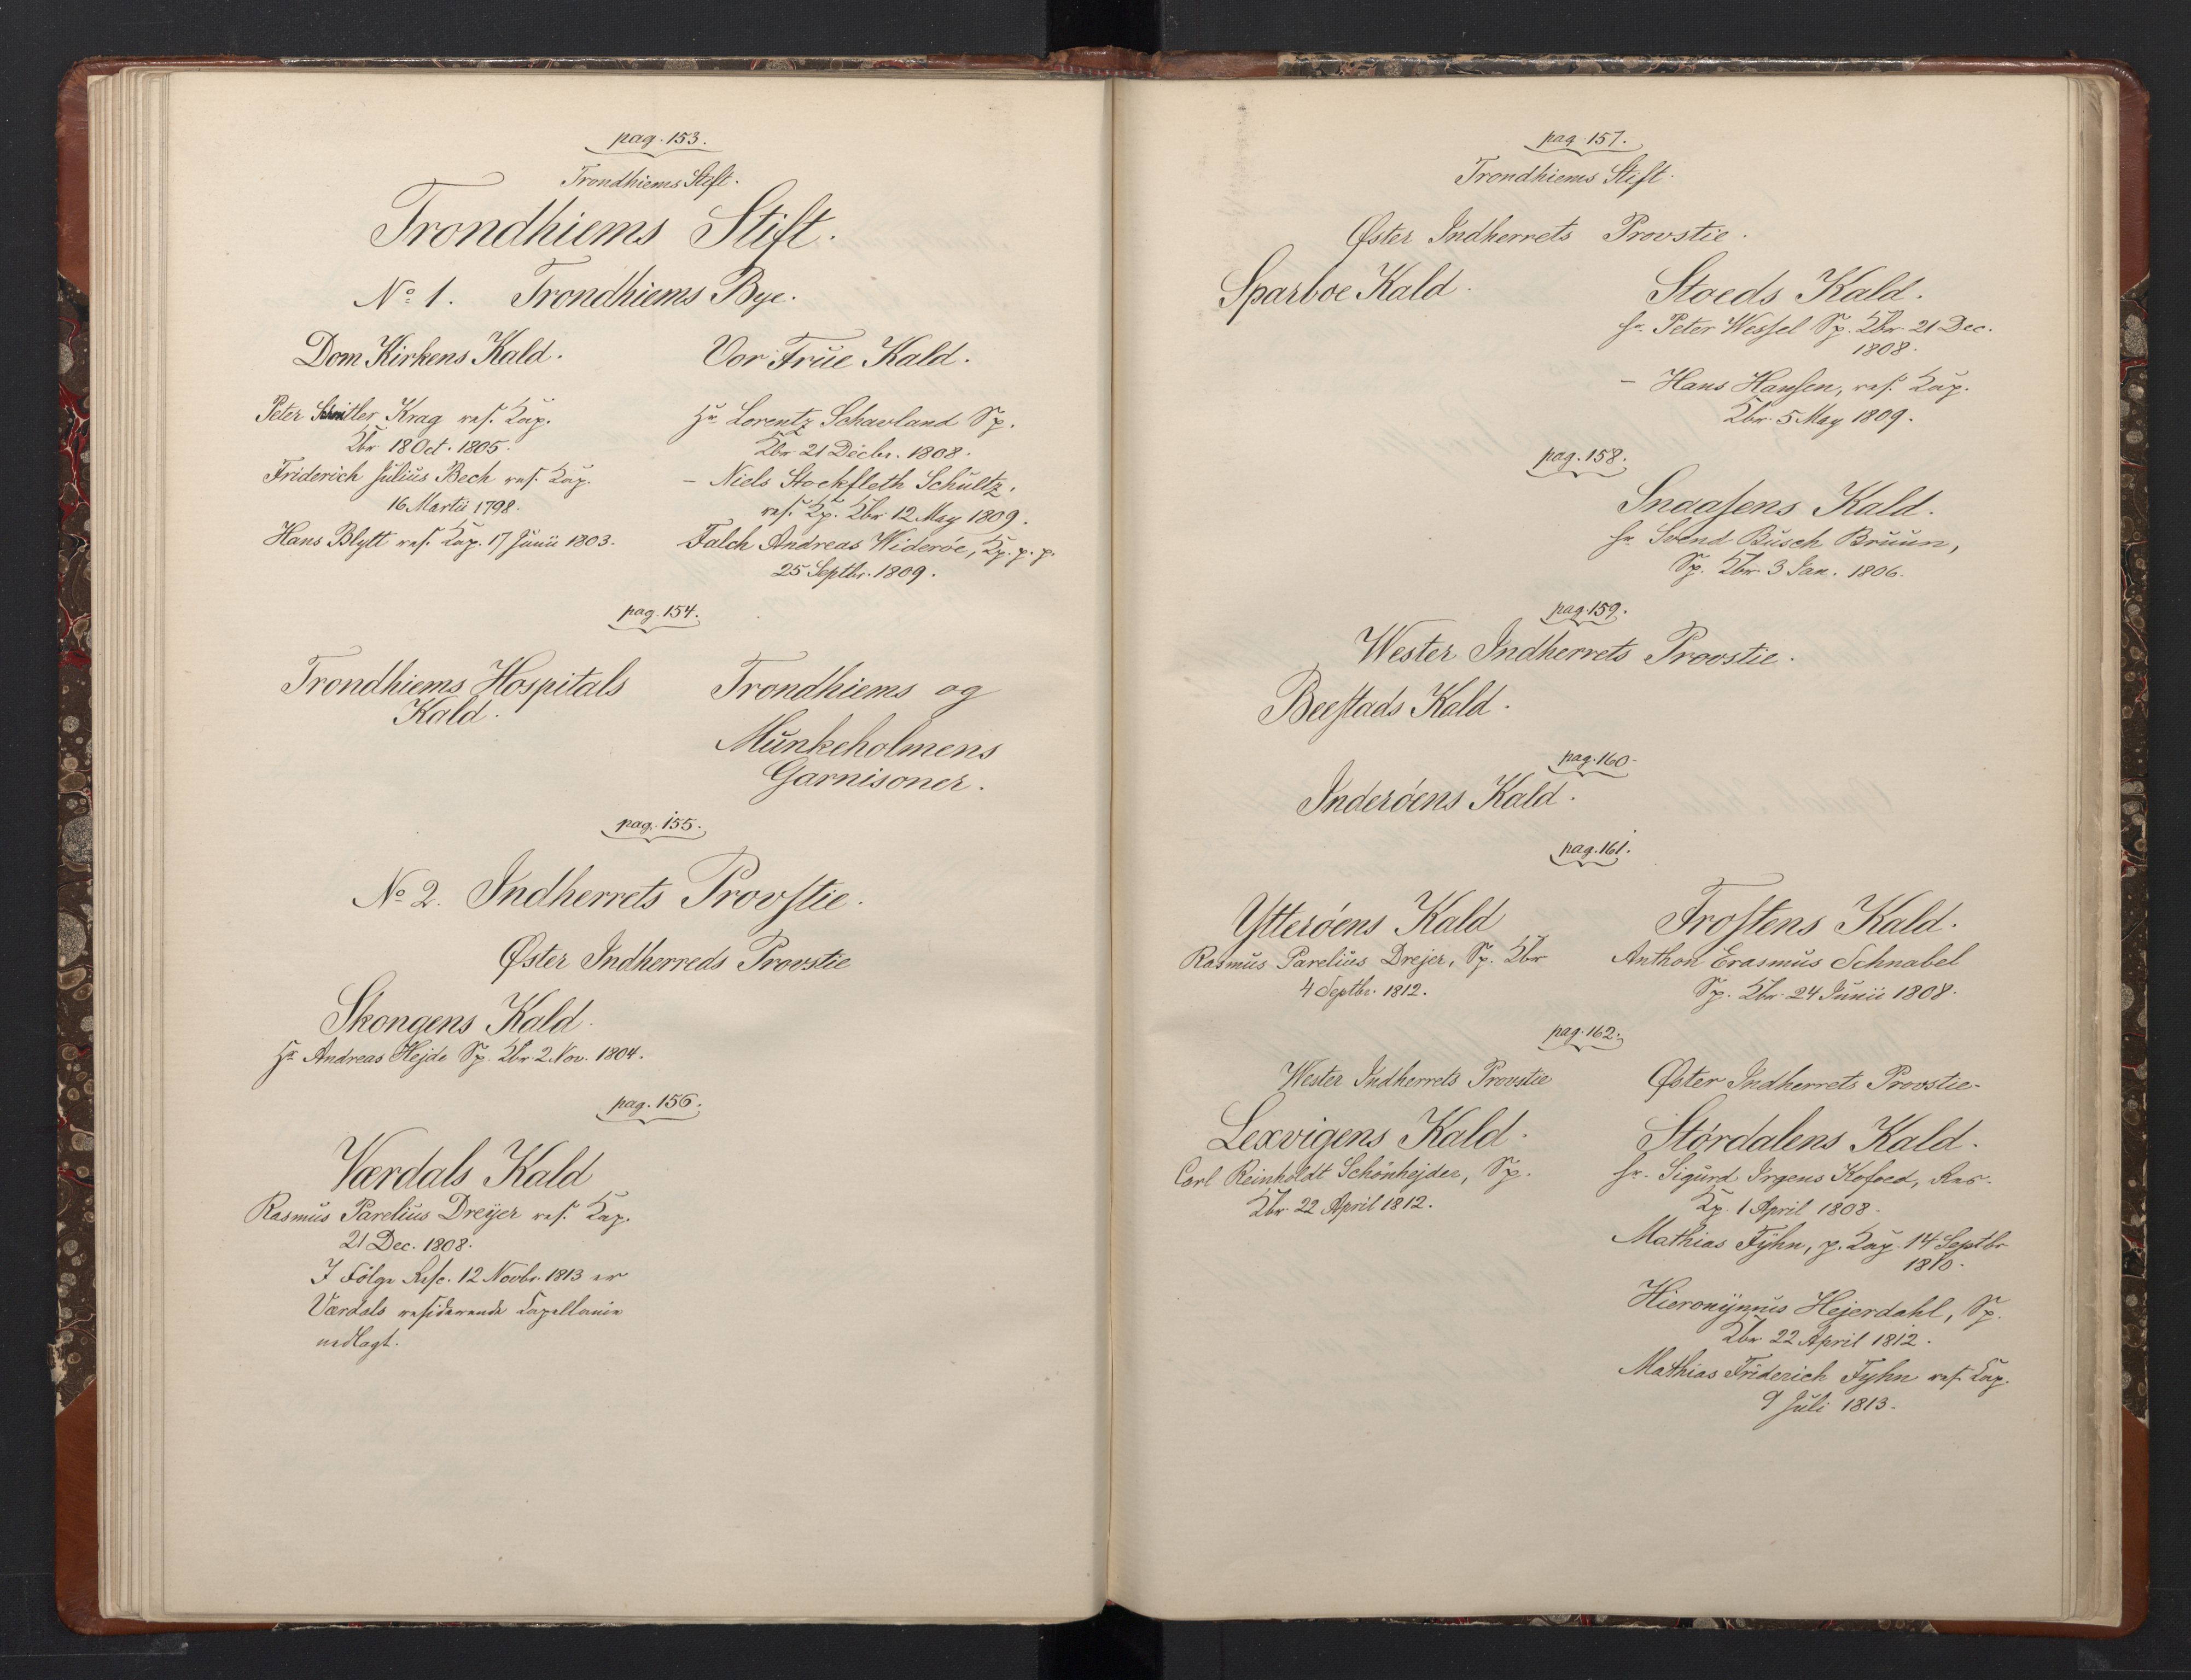 pag. 153.
Trondhiems Stift.
Trondhiems Stift.
No 1. Trondhiems Bye.
Dom Kirkens Kald.
Peter Schnitler Krag res. Cap.
Kbr 18 Oct. 1805.
Friderich Julius Bech res. Cap.
16 Martii 1798.
Hans Blytt res. Cap. 17 Junii 1803.
Vor Frue Kald.
Hr Lorentz Schavland Sp.
Kbr 21 Decbr. 1808.
– Niels Stockfleth Schultz,
res. Kp. Kbr 12 May 1809.
Falch Andreas Widerøe, Kp. p. p.
25 Septbr. 1809.
pag. 154.
Trondhiems Hospitals
Kald.
Trondhiems og
Munkeholmens
Garnisoner.
pag. 155.
No 2. Indherrets Provstie.
Øster Indherreds Provstie
Skongens Kald.
Hr Andreas Hejde Sp. Kbr 2 Nov. 1804.
pag. 156.
Værdals Kald
Rasmus Parelius Dreÿer res. Cap.
21 Dec. 1808.
I Følge Resc. 12 Novbr. 1813 er
Værdals residerende Capellanie
nedlagt.
pag. 157.
Trondhiems Stift.
Øster Indherrets Provstie.
Sparboe Kald.
Stoeds Kald.
Hr. Peter Wessel Sp. Kbr. 21 Dec.
1808.
– Hans Hansen, res. Cap.
Kbr. 5 May 1809.
pag. 158.
Snaasens Kald.
Hr Svend Busch Bruun,
Sp. Kbr. 3 Jan. 1806.
pag. 159.
Wester Indherrets Provstie.
Beestads Kald.
pag. 160.
Inderøens Kald.
pag. 161.
Ytterøens Kald
Rasmus Parelius Drejer, Sp. Kbr
4 Septbr. 1812.
Frostens Kald.
Anthon Erasmus Schnabel
Sp. Kbr. 24 Junii 1808.
pag. 162.
Wester Indherrets Provstie
Lexvigens Kald.
Carl Reinholdt Schønhejder, Sp.
Kbr. 22 April 1812.
Øster Indherrets Provstie.
Størdalens Kald.
Hr. Sigurd Irgens Kofoed, Res.
Kp. 1 April 1808.
Mathias Fÿhn, p. Cap. 14 Septbr
1810.
Hieronÿmus Hejerdahl, Sp.
Kbr 22 April 1812.
Mathias Friderich Fyhn res. Cap.
9 Juli 1813.